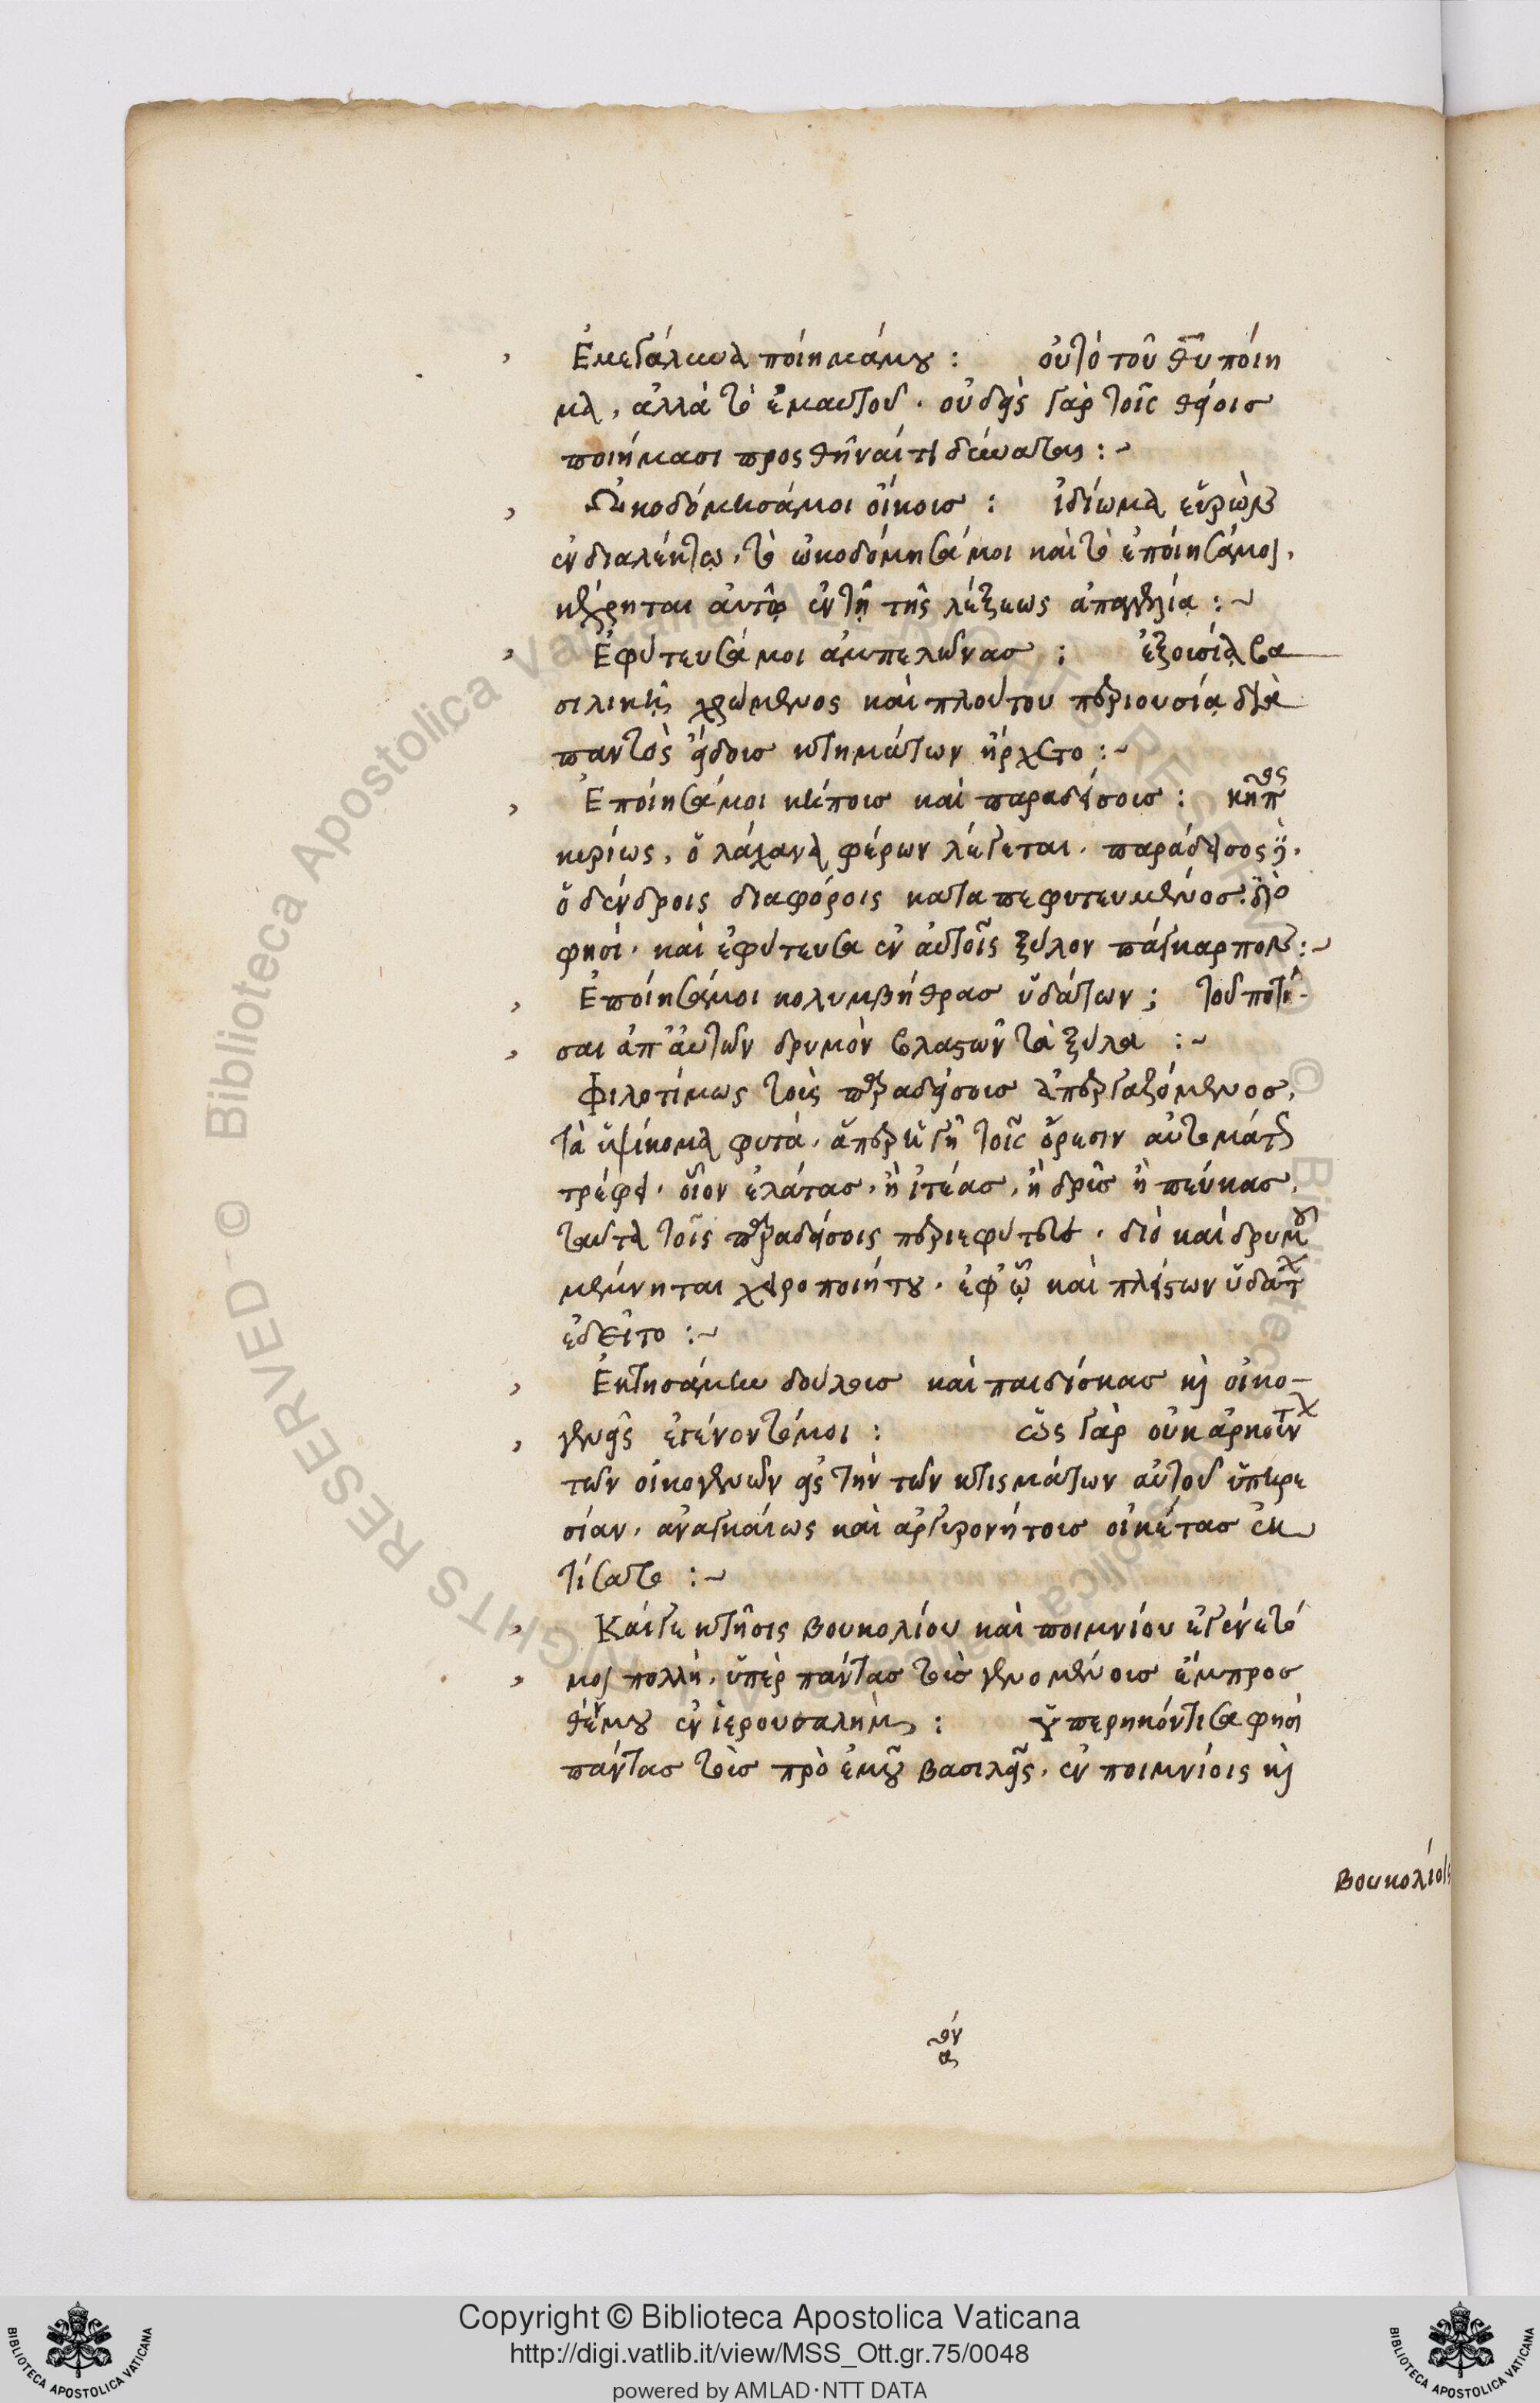 Ἐμεγάλυνα ποίημά μου : οὐ τὸ τοῦ θ̅υ̅ ποίη
μα, ἀλλὰ τὸ ἐμαυτοῦ. οὐδεὶς γὰρ τοῖς θείοις
ποιήμασι προσθῆναί τι δύναται :~
Ὠικοδόμησά μοι οἴκους : ἰδίωμα εὑρὼν
ἐν διαλέκτῳ, τὸ ὠκοδόμησά μοι καὶ τὸ ἐποίησά μοι,
κέχρηται αὐτῷ ἐν τῇ τῆς λέξεως ἀπαγγελίᾳ :~
Ἐφύτευσά μοι ἀμπελῶνας : ἐξουσίᾳ βα
σιλικῇ χρώμενος καὶ πλούτου περιουσίᾳ διὰ
παντὸς εἴδους κτημάτων ἤρχετο :~
Ἐποίησά μοι κήπους καὶ παραδείσους : κῆπος
κυρίως, ὁ λάχανα φέρων λέγεται. παράδεισος δὲ,
ὁ δένδροις διαφόροις καταπεφυτευμένος. διό
φησι. καὶ ἐφύτευσα ἐν αὐτοῖς ξύλον πάγκαρπον :~
Ἐποίησά μοι κολυμβήθρας ὑδάτων ; τοῦ ποτί-
σαι ἀπ' αὐτῶν δρυμὸν βλαστῶντα ξύλα :~
Φιλοτίμως τοὺς παραδείσους ἀπεργαζόμενος,
τὰ ὑψίκομα φυτά, ἅπερ ἡ γῆ τοῖς ὄρεσιν αὐτομάτως
τρέφει. οἷον ἐλάτας, ἢ ἰτέας, ἢ δρῦς ἢ πεύκας,
ταῦτα τοῖς παραδείσοις περιεφύτευε. διὸ καὶ δρυμοῦ
μέμνηται χειροποιήτου. ἐφ' ᾧ καὶ πλείστων ὑδάτων
ἐδεῖτο :~
Ἐκτησάμην δούλους καὶ παιδίσκας καὶ οἰκο-
γενεῖς ἐγένοντό μοι : ὡς γὰρ οὐκ ἀρκούντων
τῶν οἰκογενῶν εἰς τὴν τῶν κτισμάτων αὐτοῦ ὑπηρε
σίαν, ἀναγκαίως καὶ ἀργυρονήτους οἰκέτας ἐκ
τίσατο :~
Καίγε κτῆσις βουκολίου καὶ ποιμνίου ἐγένετό
μοι πολλή, ὑπὲρ πάντας τοὺς γενομένους ἔμπροσ
θέν μου ἐν ἱερουσαλήμ : Ὑπερηκόντισα φησὶ
πάντας τοὺς πρὸ ἐμοῦ βασιλεῖς, ἐν ποιμνίοις καὶ
βουκολίοις
Copyright © Biblioteca Apostolica Vaticana
http://digi.vatlib.it/view/MSS_Ott.gr.75/0048
powered by AMLAD·NTT DATA